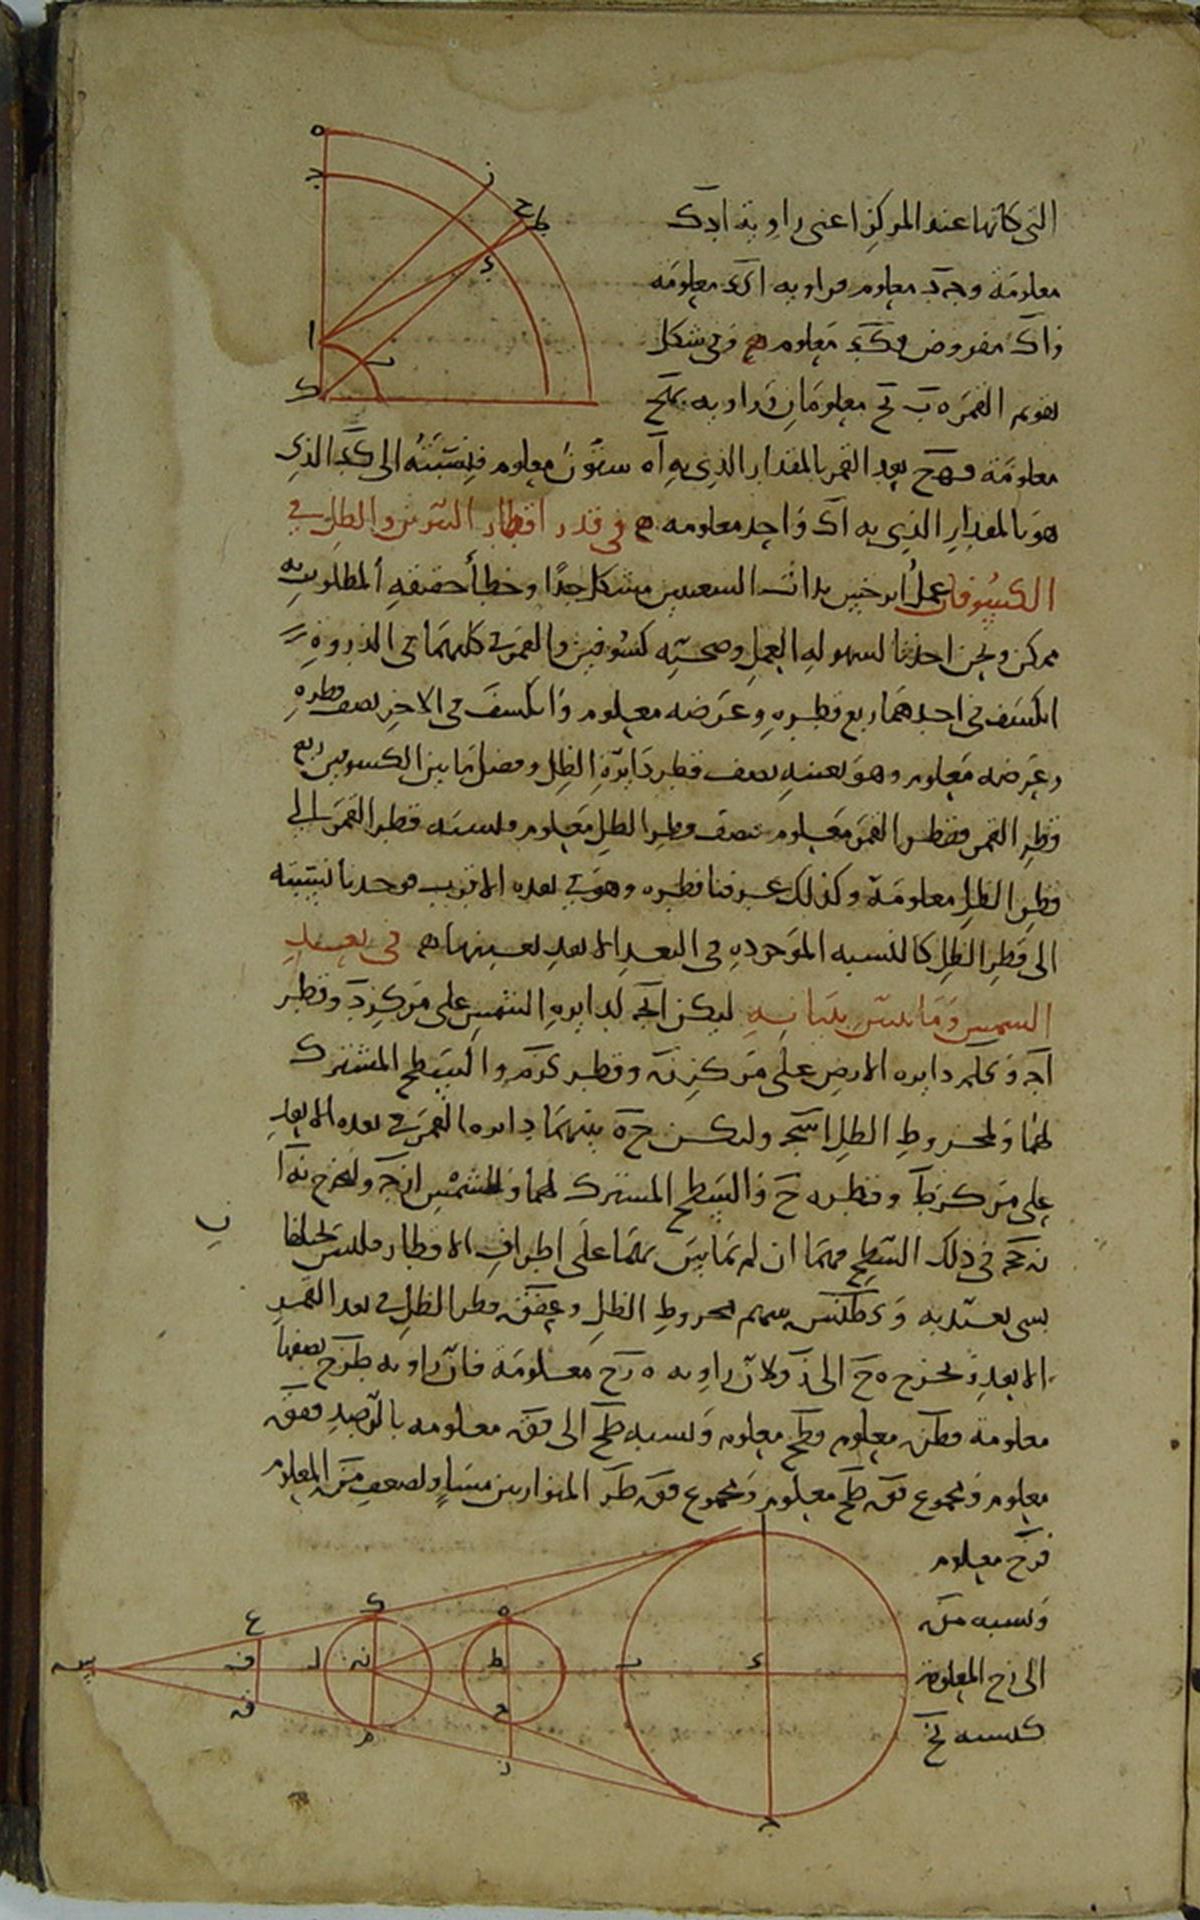 التي كانها عند المركز اعني زاوية ادك
معلومة وجد معلوم فزاويه اكد معلومه
واك مفروض فكد معلوم وفي شكل
تقويم القمر ه ب ح معلومان وزاويه
معلومة فهح بعد القمر بالمقدار الذي به اه ستون معلوم فنسبته الى كد الذي
هو بالمقدار الذي به اك واحد معلومه في قدر اقطار النيرين والظل في
الكسوفات عمل ابرخس بذات الشعبتين مشكل جدا وخطأ حقيقه المطلوب به
ممكن ونحن اخذنا لسهوله العمل وصحته كسوفين والقمر في كليهما في الذروه
انكسف في احدهما ربع قطره وعرضه معلوم وانكسف في الاخر نصف قطره
وعرضه معلوم وهو بعينه نصف قطر دايرة الظل وفضل ما بين الكسوفين ربع
قطر القمر فقطر القمر معلوم نصف قطر الظل معلوم ونسبه قطر القمر الى
قطر الظل معلومة وكذلك عرفنا قطره وهو في بعده الاقرب فوجدنا نسبته
الى قطر الظل كالنسبه الموجوده في البعد الابعد بعينها في بعد
الشمس وما يتبين بتبيانه ليكن ابج لدايره الشمس على مركز د وقطر
اج و كلم دايره الارض على مركز ن وقطر كنم والسطح المشترك
لهما ولمخروط الظل اسج وليكن ح ه بينهما دايره القمر في بعده الابعد
على مركز ط وقطره ح والسطح المشترك لهما وللشمس انج ولنخرج ن ا
ن ج في ذلك السطح فهما ان لم تماس تماما على اطراف الاقطار فليس تختلفا
بشي يعتد به و دطنس سهم مخروط الظل وعفق قطر الظل في بعد القمر
الابعد ونخرج ه ح الى ز ولان زاويه ه ن ح معلومة فان زاويه ط ن ح نصفها
معلومة فطن معلوم وطح معلوم ونسبه طح الى فق معلومه بالرصد ففق
معلوم ومجموع فق طح معلوم ومجموع فق طز المتوازيين مساو لضعف من المعلوم
فزح معلوم
ونسبه من
الى زح المعلومه
كنسبه نج
ه
ج
ز
ح
ط
د
ا
ب
ك
ب
ا
ك
ه
ع
س
ف
ل
ن
ط
ب
د
ق
م
ح
ز
ج